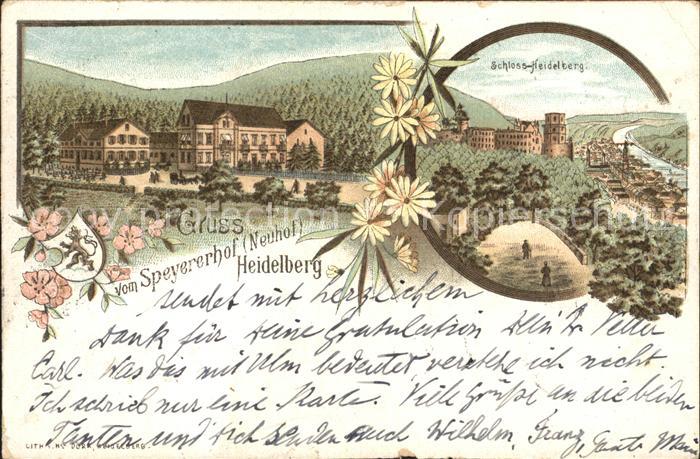 Schloss-Heidelberg.
Gruss
vom Speyererhof (Neuhof)
Heidelberg
sendet mit herzlichem
Dank für Deine Gratulation Dein Dr. Vetter
Carl. Was das mit Ulm bedeutet verstehe ich nicht.
Ich schrieb nur eine Karte. Viele Grüße an die beiden
Tanten und Dich senden auch Wilhelm, Franz, Tante
HEIDELBERG